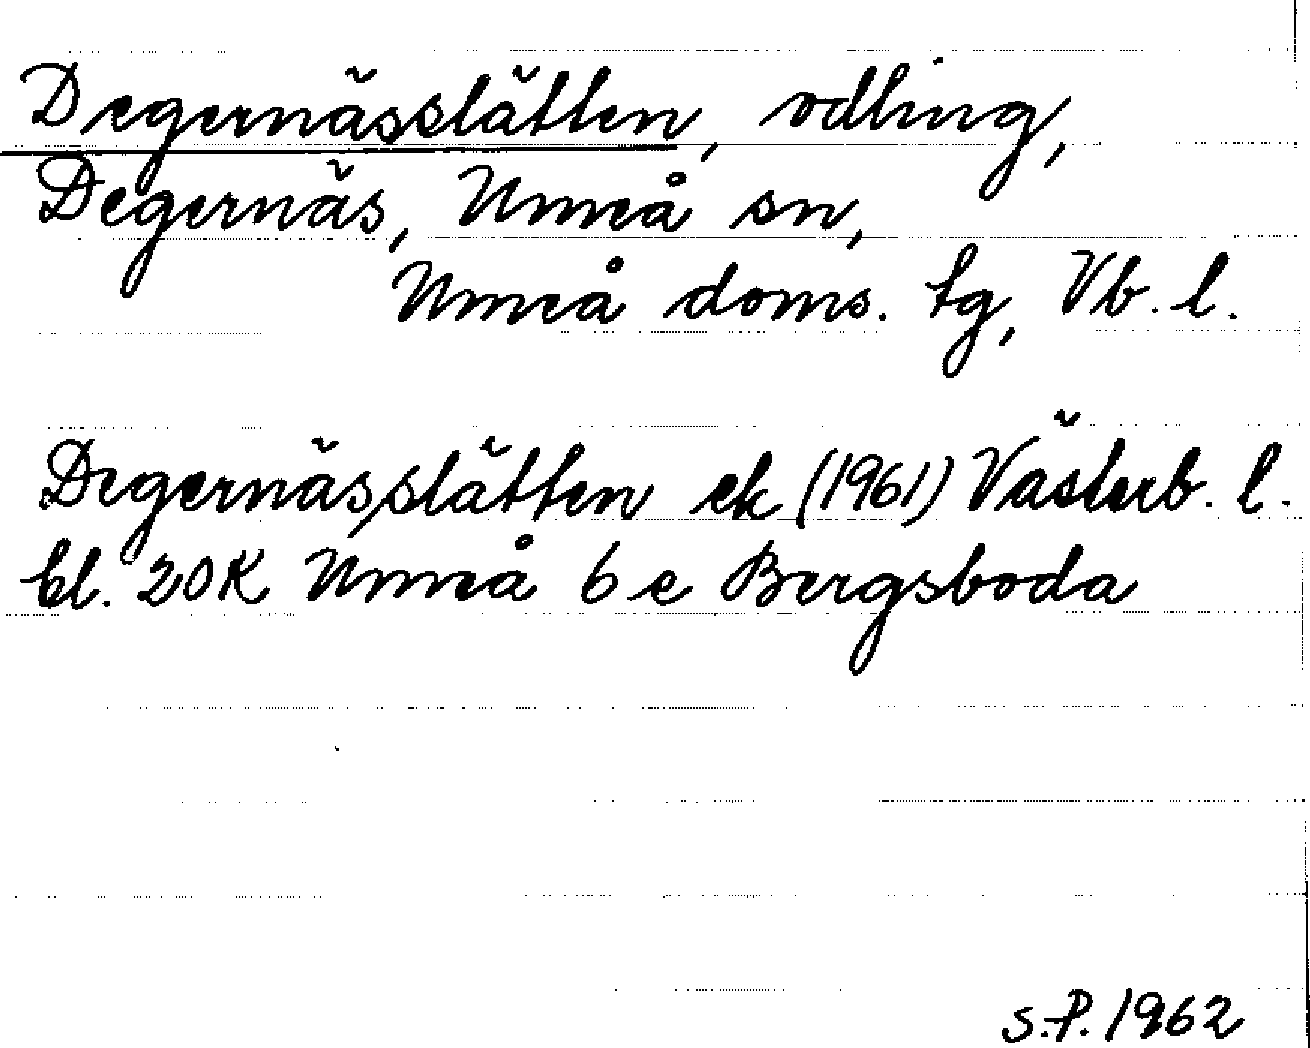 Degernässlätten, odling,
Degernäs, Umeå sn,
Umeå doms. tg, Vb. l.
Degernässlätten ek (1961) Västerb. l.
bl. 20K Umeå 6 e Bergsboda
S.P. 1962